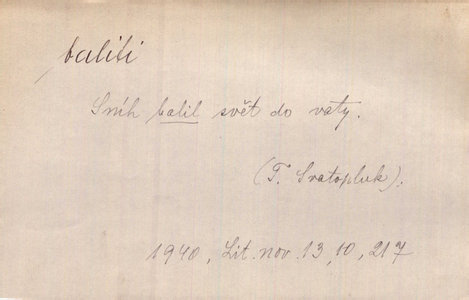 balili
Sníh balil svět do vaty.
(T. Svatopluk).
1940, Lit. nov. 13, 10, 217